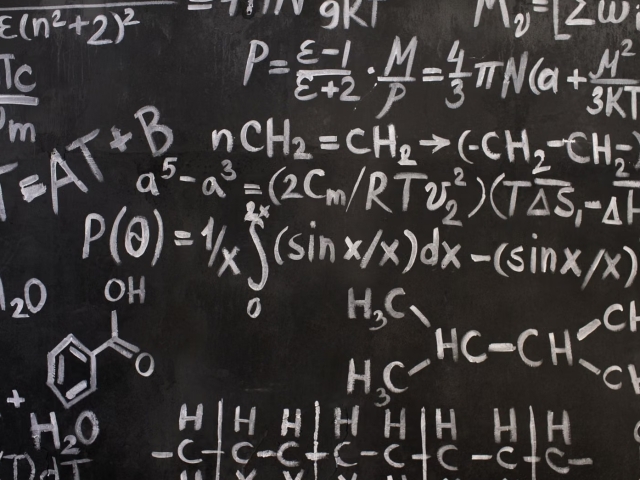 ε(n²+2)²
9KT
P=ε-1/ε+2·M/ρ=4/3πN(a+M²/3KT
πc
nCH₂=CH₂→(-CH₂-CH₂-)
=AT+B
a⁵-a³=(2Cm/RTυ₂²)(TΔS₁-ΔH
P(θ)=1/x∫₀²ˣ(sin x/x)dx-(sinx/x)
H₂O
OH
O
H₃C
HC-CH
H₃C
+
H₂O
H H H H H H H
-C-C-C-C-C-C-C-